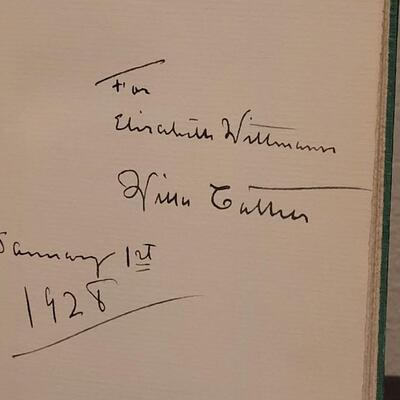 For
Elizabeth Wittmann
Willa Cather
January 1st
1928